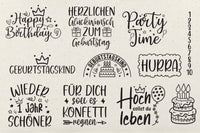 Happy
Birthday
HERZLICHEN
Glückwunsch
ZUM
Geburtstag
Party
Time
1
2
3
4
5
6
7
8
9
10
GEBURTSTAGSKIND
GEBURTSTAGSKIND
HURRA
WIEDER
1 Jahr
SCHÖNER
FÜR DICH
soll es
KONFETTI
regnen
Hoch
sollst du
leben